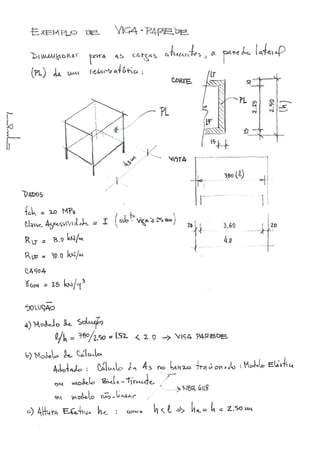 EXEMPLO DE VIGA-PAREDE
Dimensionar para as cargas atuantes, a parede lateral
(PL) de um reservatório:
CORTE
LT
PL
LF
PL
10
2.25
2.50
(h)
15
15
4.0m
VISTA
380 (l)
20
3,60
20
4.0
DADOS
fck = 20 MPa
Classe Agressividade = I (cob to viga ≥ 25 mm)
RLT = 8.0 kN/m
RLF = 30.0 kN/m
CA50A
γcon = 25 kN/m³
SOLUÇÃO
a) Modelo de Solução
l/h = 380/250 = 1.52 < 2.0 → VIGA PAREDE
b) Modelo de Cálculo
Adotado: Cálculo da As no banzo tracionado: Modelo Elástico
ou modelo Biela-Tirante
→ NBR 6118
ou modelo não-linear
c) Altura Efetiva he: como h < l ⇒ he = h = 2,50 m